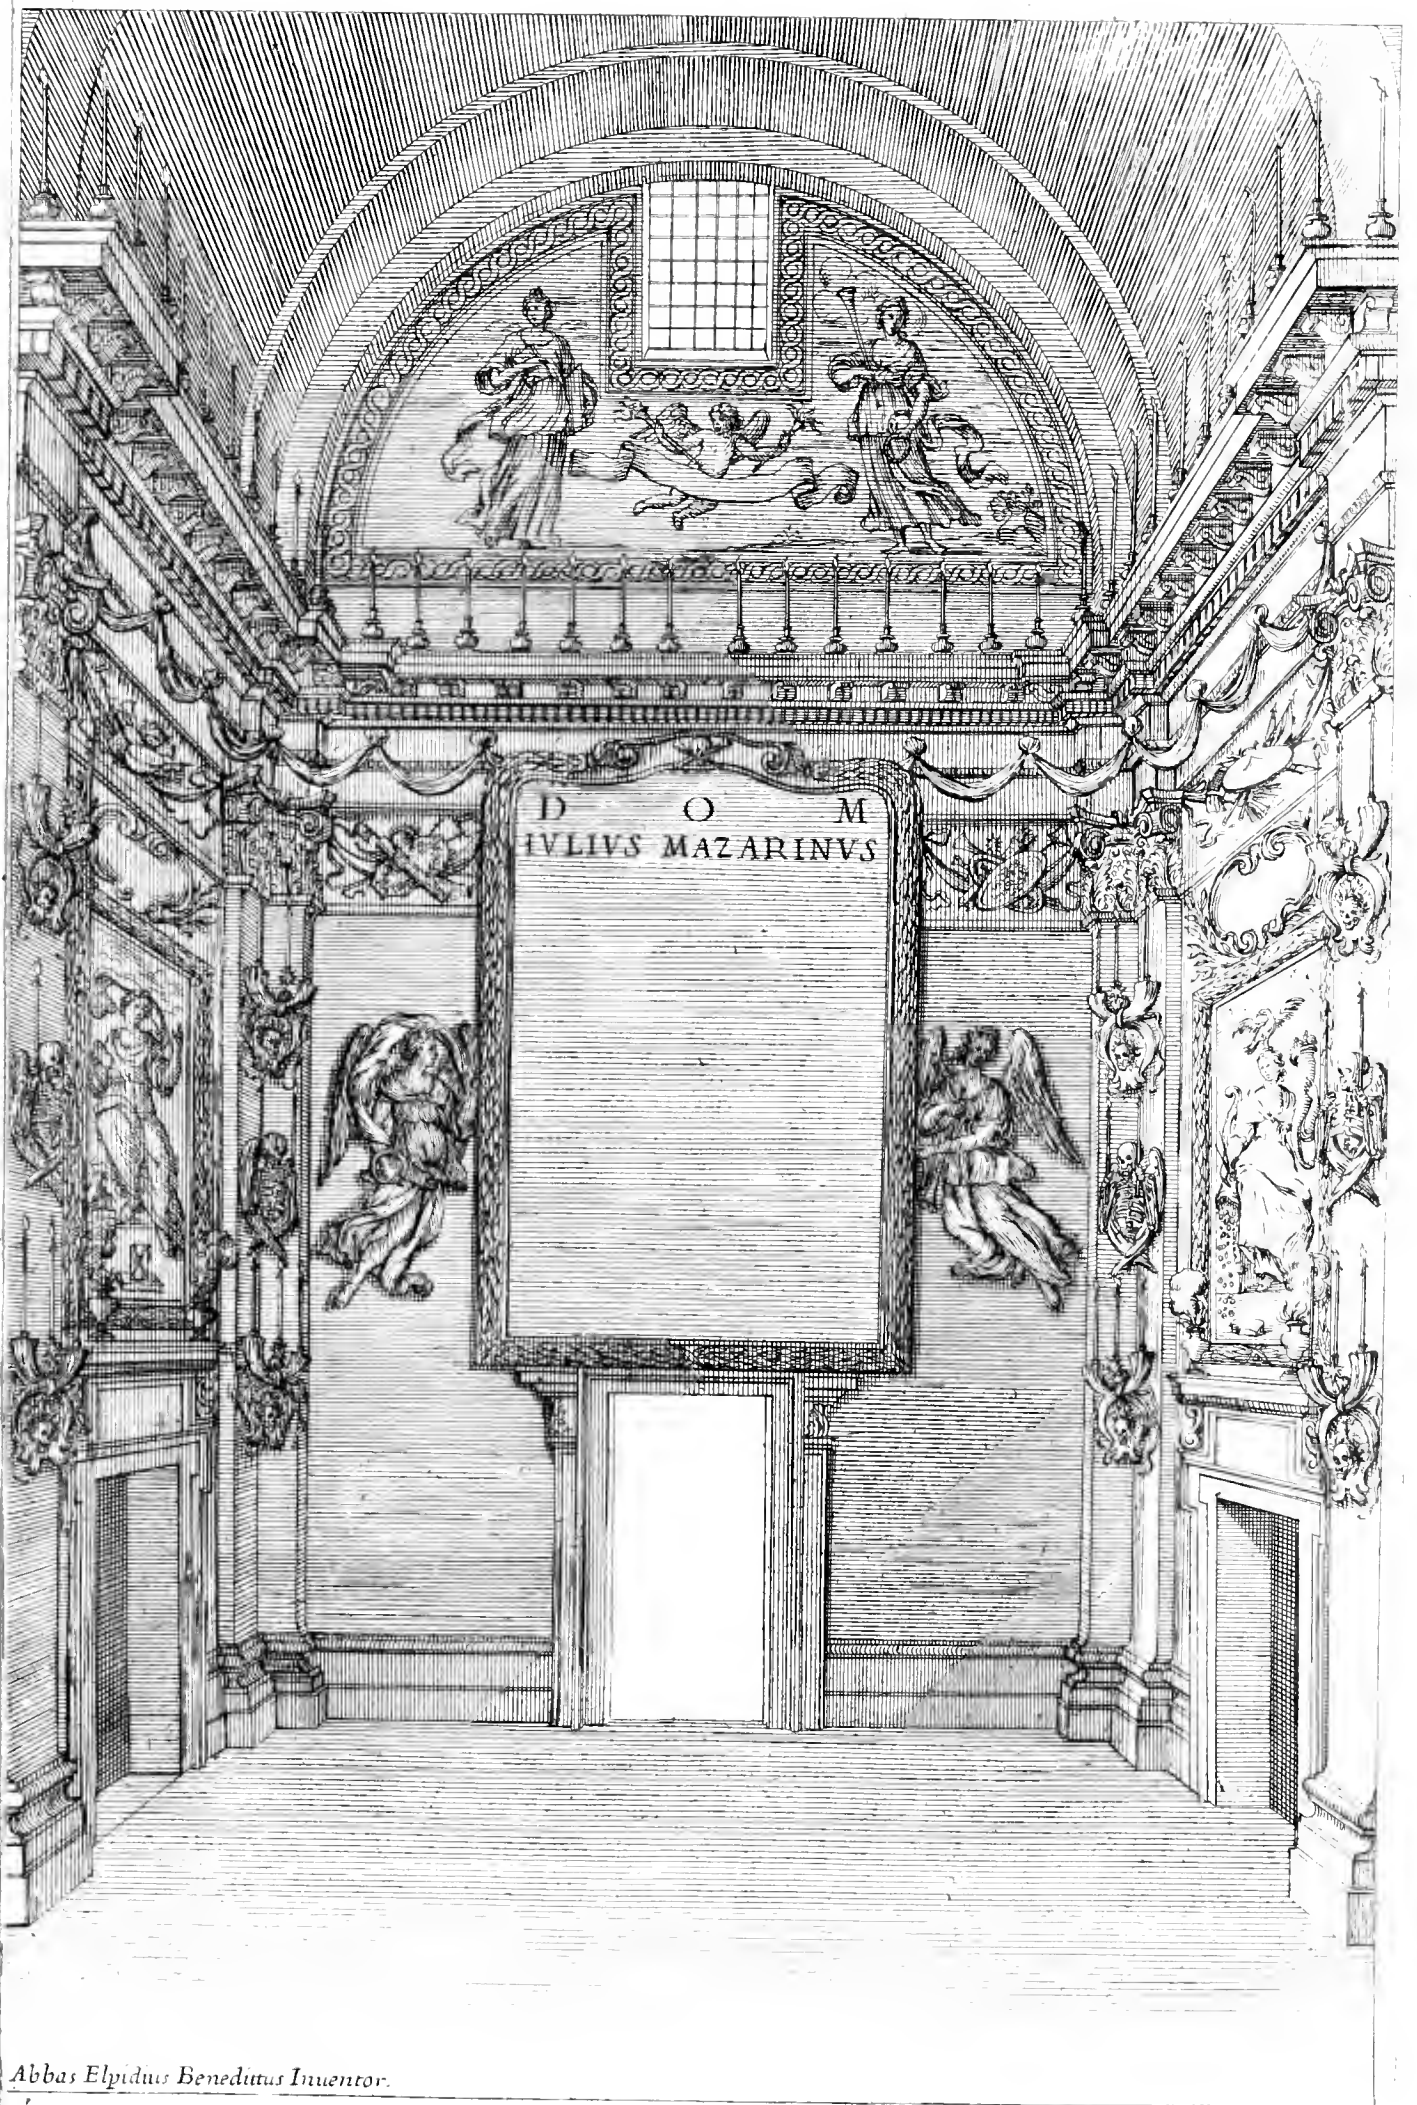 D O M
IVLIVS MAZARINVS
Abbas Elpidius Benedittus Inuentor.